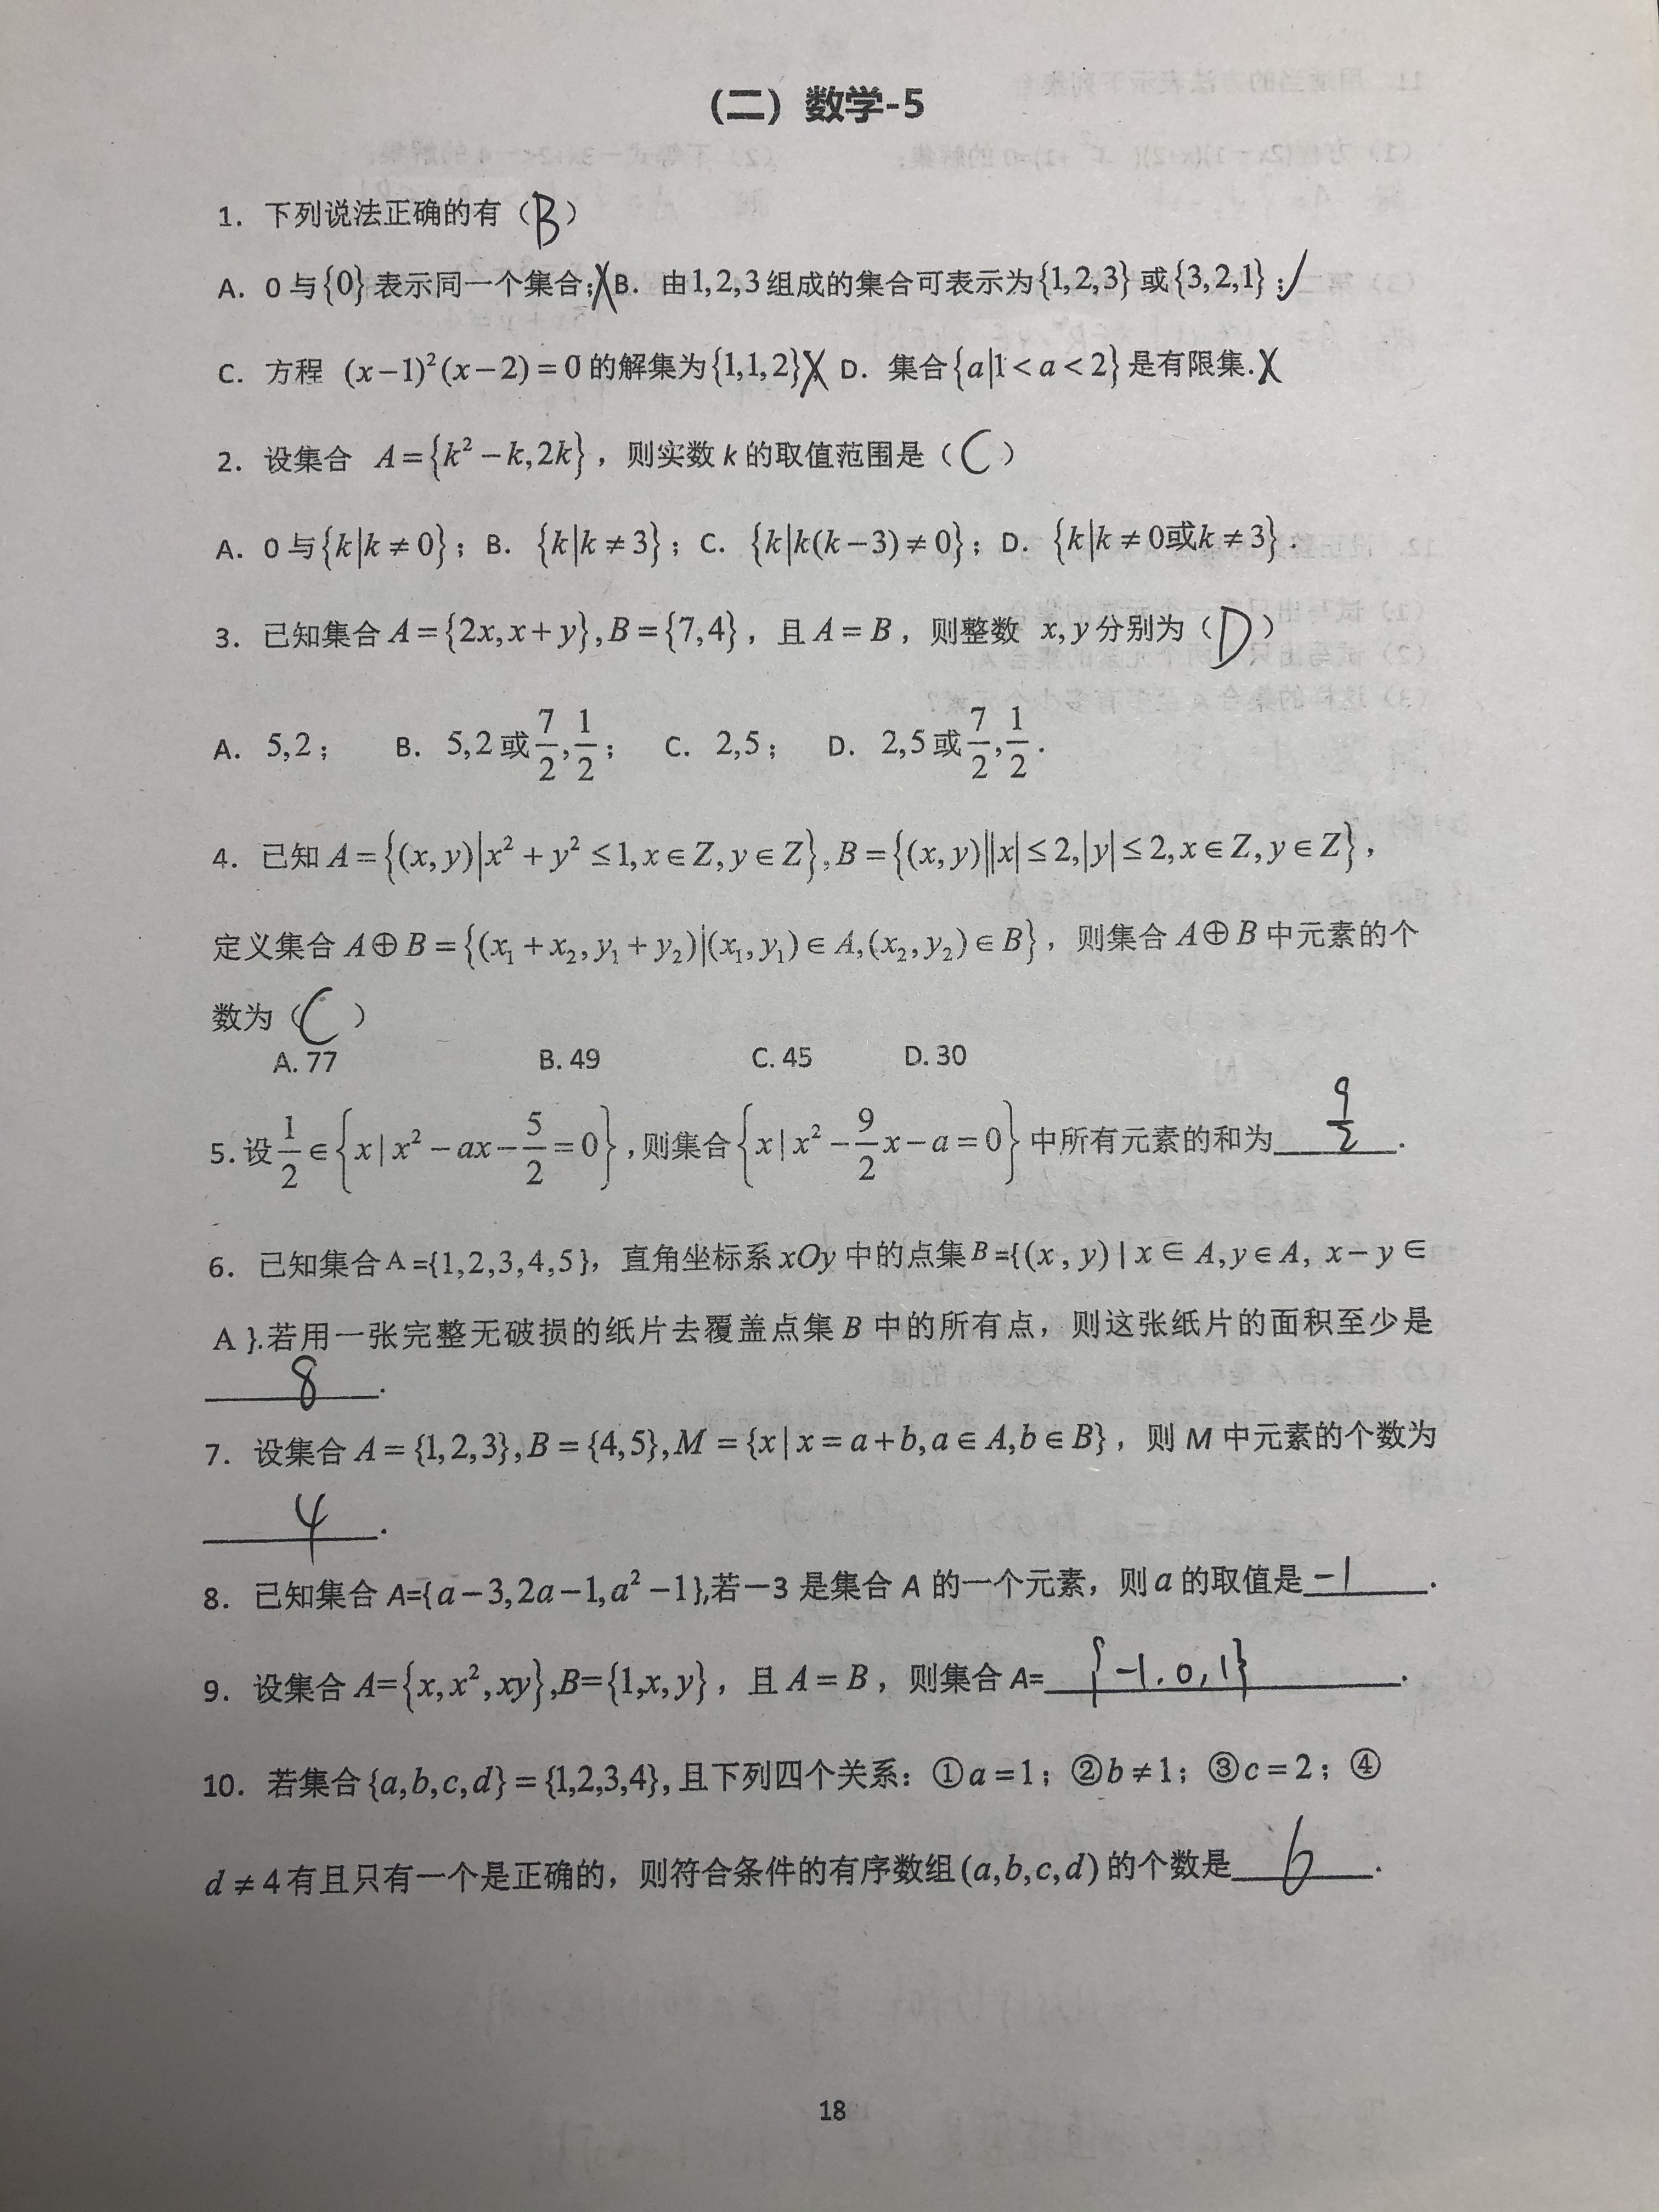 （二）数学-5
1. 下列说法正确的有（B）
A. 0与{0}表示同一个集合；X B. 由1,2,3组成的集合可表示为{1,2,3}或{3,2,1}；✓
C. 方程 (x−1)²(x−2)=0的解集为{1,1,2}；X D. 集合{a|1<a<2}是有限集.X
2. 设集合 A={k²−k,2k}，则实数k的取值范围是（C）
A. 0与{k|k≠0}；B. {k|k≠3}；C. {k|k(k−3)≠0}；D. {k|k≠0或k≠3}.
3. 已知集合A={2x,x+y},B={7,4}，且A=B，则整数 x,y分别为（D）
A. 5,2； B. 5,2或7/2,1/2； C. 2,5； D. 2,5或7/2,1/2.
4. 已知A={(x,y)|x²+y²≤1,x∈Z,y∈Z},B={(x,y)||x|≤2,|y|≤2,x∈Z,y∈Z}，
定义集合A⊕B={(x₁+x₂,y₁+y₂)|(x₁,y₁)∈A,(x₂,y₂)∈B}，则集合A⊕B中元素的个
数为（C）
A. 77 B. 49 C. 45 D. 30
5. 设1/2∈{x|x²−ax−5/2=0},则集合{x|x²−9/2x−a=0}中所有元素的和为9/2.
6. 已知集合A={1,2,3,4,5}，直角坐标系xOy中的点集B={(x,y)|x∈A,y∈A, x−y∈
A}.若用一张完整无破损的纸片去覆盖点集B中的所有点，则这张纸片的面积至少是
8.
7. 设集合A={1,2,3},B={4,5},M={x|x=a+b,a∈A,b∈B}，则M中元素的个数为
4.
8. 已知集合A={a−3,2a−1,a²−1},若−3是集合A的一个元素，则a的取值是−1.
9. 设集合A={x,x²,xy},B={1,x,y}，且A=B，则集合A={−1,0,1}.
10. 若集合{a,b,c,d}={1,2,3,4},且下列四个关系：①a=1；②b≠1；③c=2；④
d≠4有且只有一个是正确的，则符合条件的有序数组(a,b,c,d)的个数是6.
18